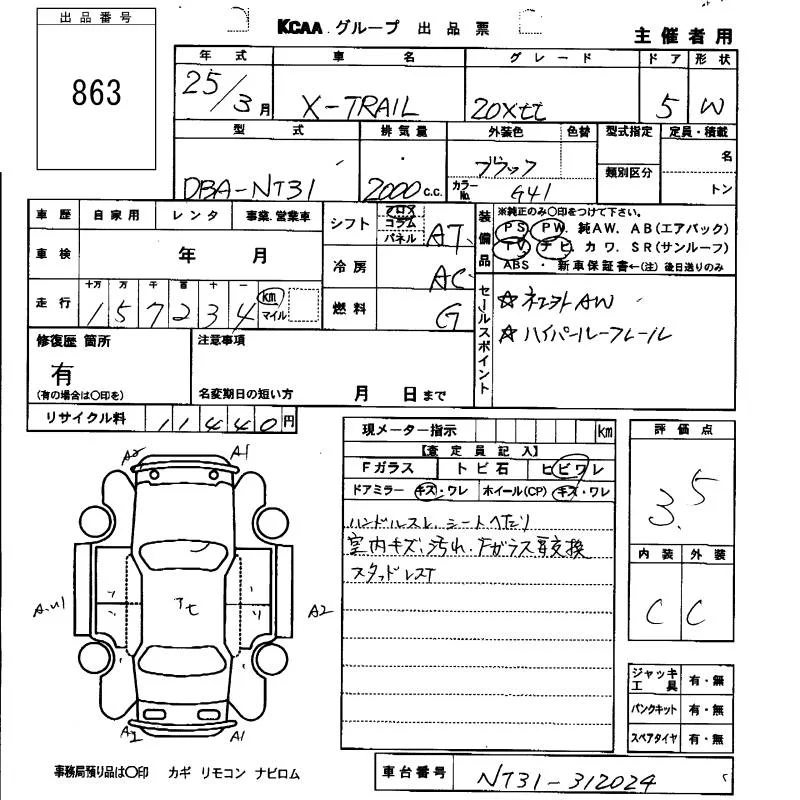 出品番号
863
KCAA グループ 出品票
主催者用
年式 車名 グレード ドア 形状
25/3月 X-TRAIL 20Xtt 5 W
型式 排気量 外装色 色替 型式指定 定員・積載
DBA-NT31 2000 c.c. ブラック 類別区分 名
カラーNo. G41 トン
車歴 自家用 レンタ 事業.営業車
車検 年 月
走行 十万 万 千 百 十 一
157234 km マイル
シフト フロア コラム パネル AT
冷房 AC
燃料 G
装備品
※純正のみ〇印をつけて下さい。
PS PW. 純AW. AB(エアバック)
TV ナビ カワ. SR(サンルーフ)
ABS ・ 新車保証書←(注) 後日送りのみ
セールスポイント
☆ AW
☆ ハイパールーフレール
修復歴 箇所
有
(有の場合は〇印を)
注意事項
名変期日の短い方 月 日まで
リサイクル料 11440円
現メーター指示 km
【査定員記入】
Fガラス トビ石 ヒビワレ
ドアミラー キズ・ワレ ホイール(CP) キズ・ワレ
ハンドルスレ シートヘたり
室内キズ、汚れ. Fガラス要交換
スタッドレスT
評価点
3.5
内装 外装
C C
A2 A1
A.U1 A2
A2 A1
ジャッキ工具 有・無
パンクキット 有・無
スペアタイヤ 有・無
事務局預り品は〇印 カギ リモコン ナビロム
車台番号 NT31-312024